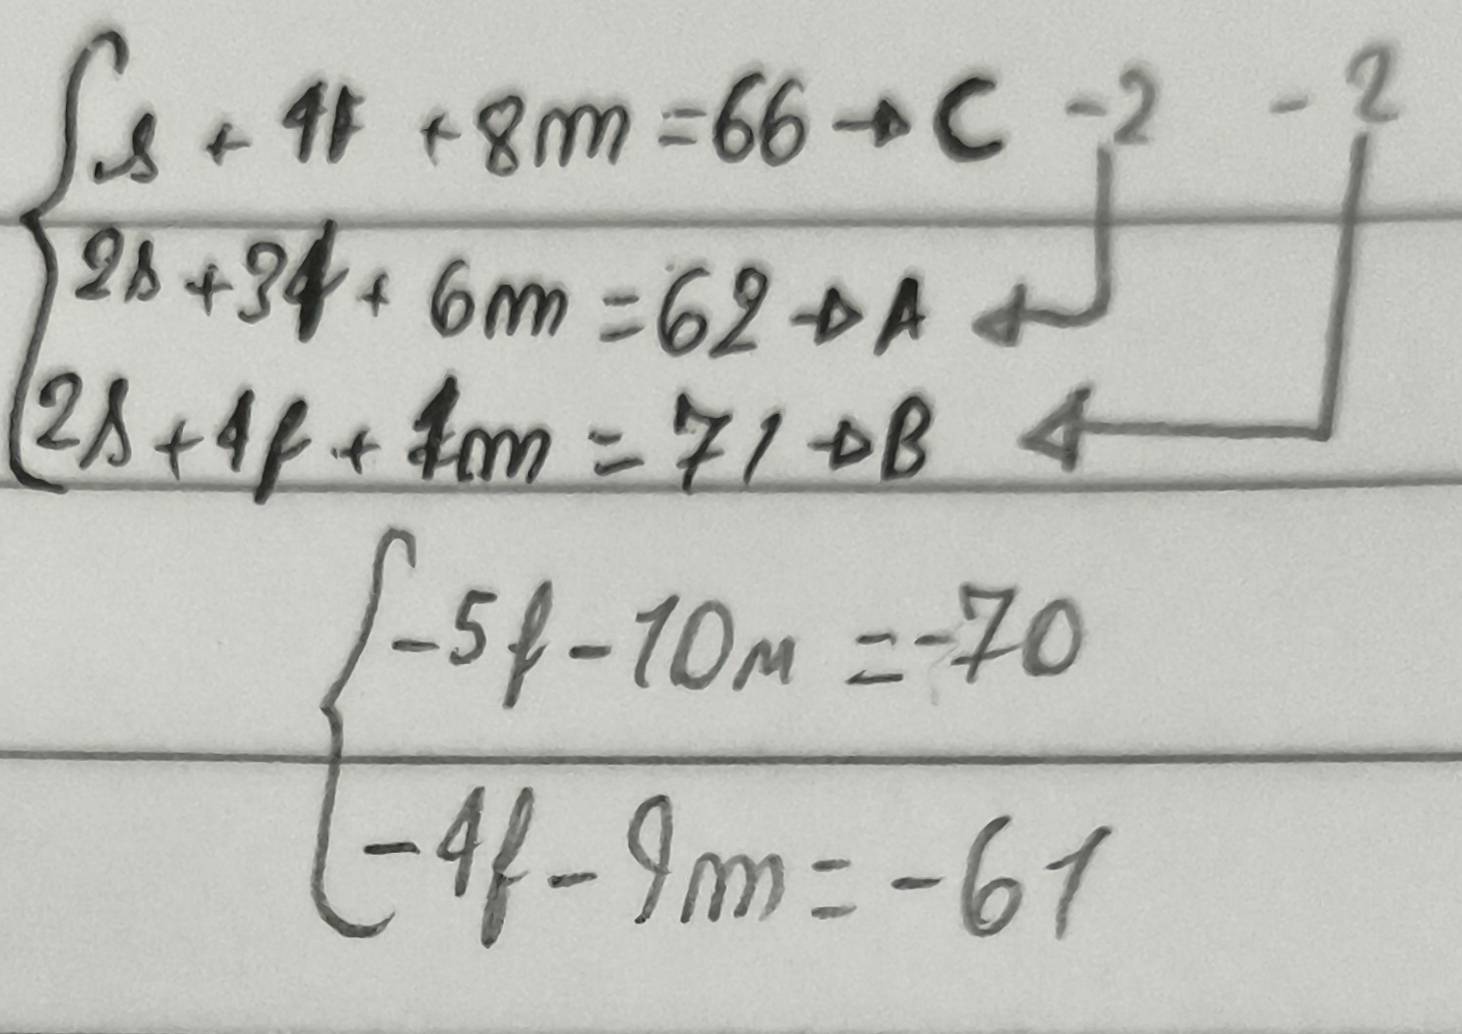 s + 4f + 8m = 66 → C -2 -2
2s + 3f + 6m = 62 → A
2s + 4f + 7m = 71 → B
-5f - 10m = -70
-4f - 9m = -61